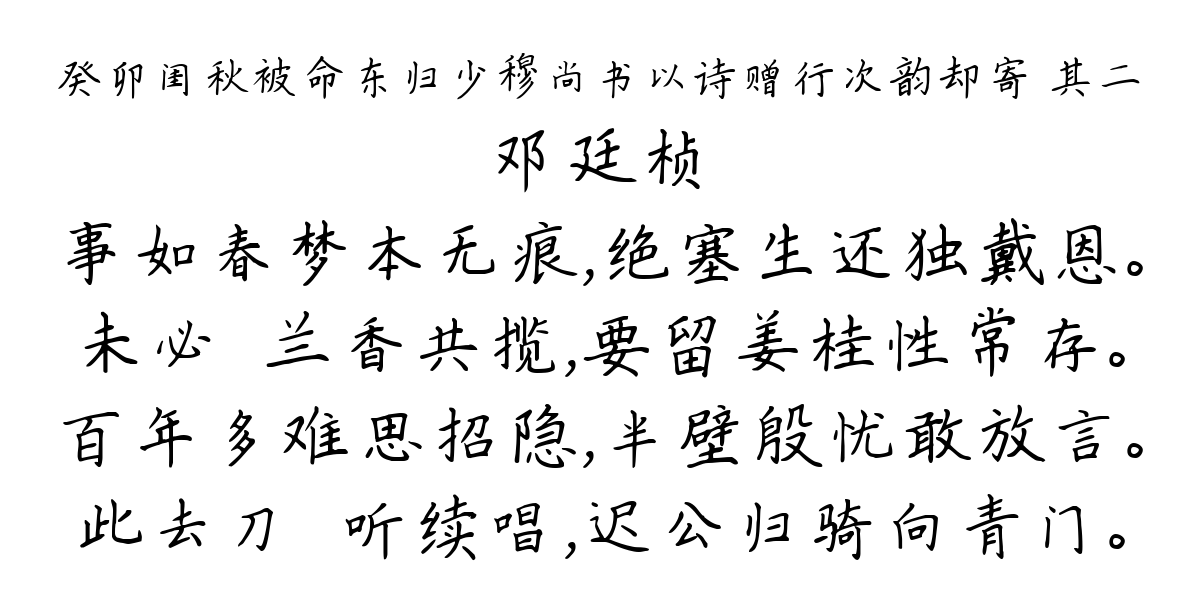 癸卯闺秋被命东归少穆尚书以诗赠行次韵却寄 其二
邓廷桢
事如春梦本无痕,绝塞生还独戴恩。
未必 兰香共揽,要留姜桂性常存。
百年多难思招隐,半壁殷忧敢放言。
此去刀 听续唱,迟公归骑向青门。